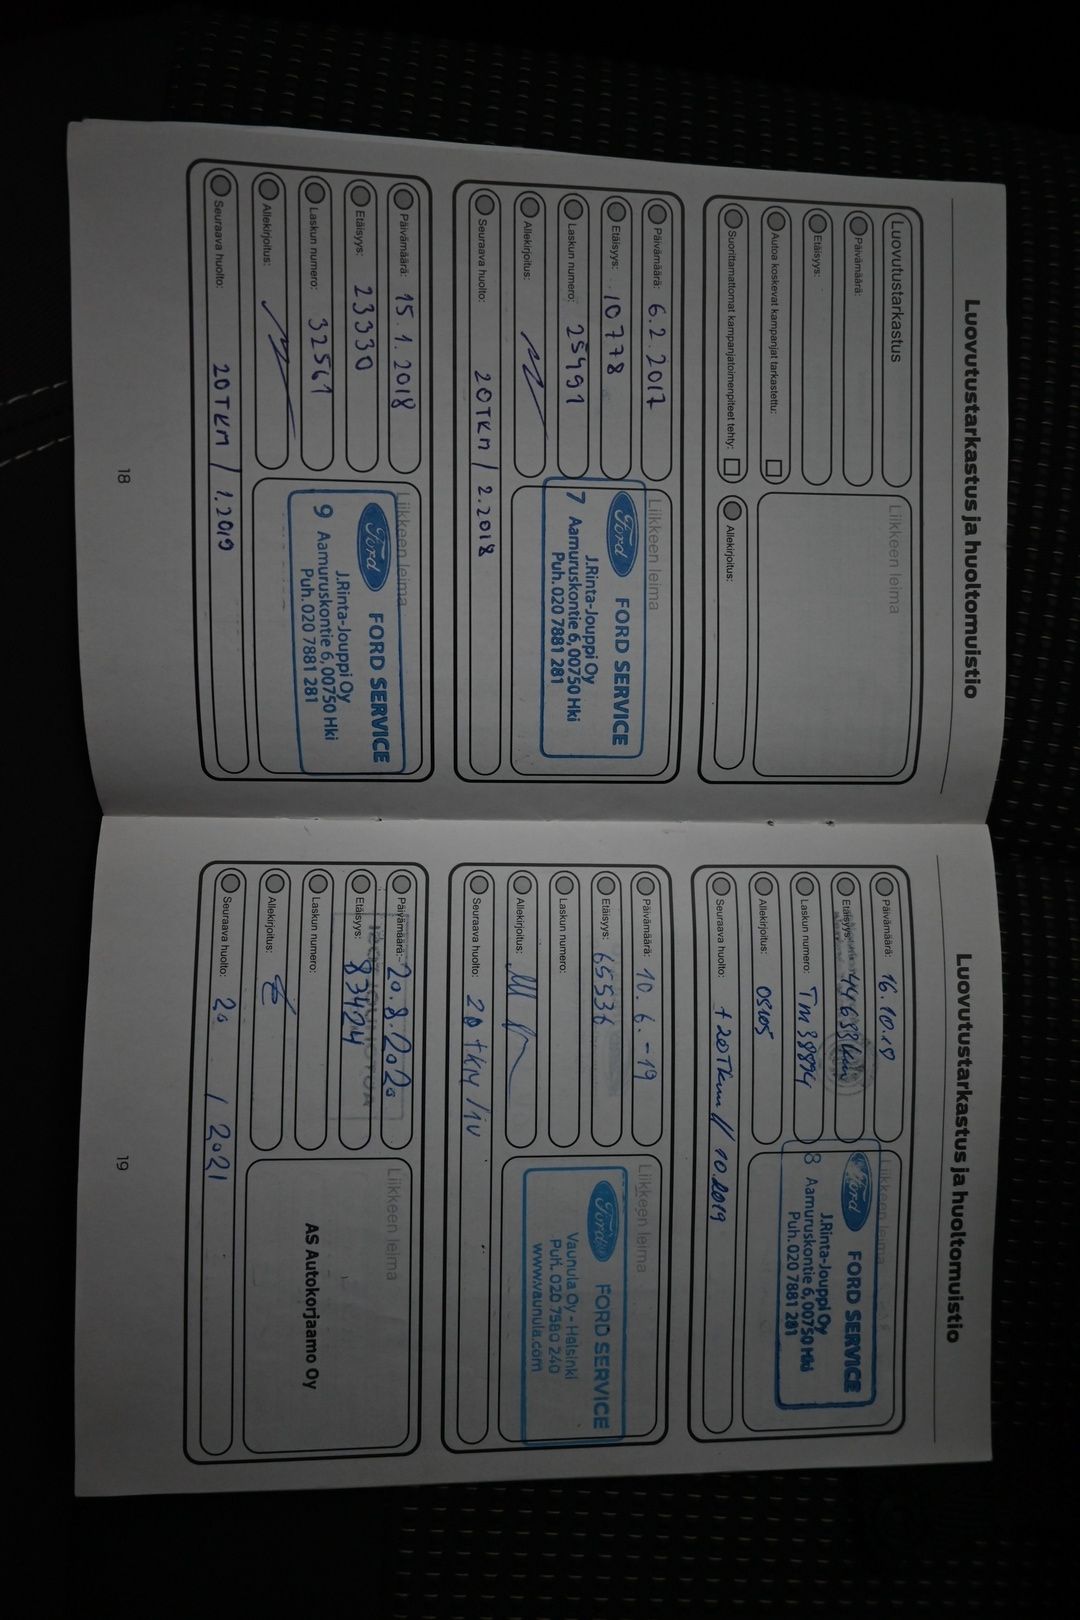 Luovutustarkastus ja huoltomuistio
Luovutustarkastus
Päivämäärä:
Etäisyys:
Autoa koskevat kampanjat tarkastettu:
Suorittamattomat kampanjatoimenpiteet tehty:
Liikkeen leima
Allekirjoitus:
Päivämäärä: 6.2.2017
Etäisyys: 10778
Laskun numero: 25991
Allekirjoitus:
Seuraava huolto: 20TKM / 2.2018
Liikkeen leima
Ford FORD SERVICE
J.Rinta-Jouppi Oy
7 Aamuruskontie 6, 00750 Hki
Puh. 020 7881 281
Päivämäärä: 15.1.2018
Etäisyys: 23330
Laskun numero: 32561
Allekirjoitus:
Seuraava huolto: 20TKM / 1.2019
Liikkeen leima
Ford FORD SERVICE
J.Rinta-Jouppi Oy
9 Aamuruskontie 6, 00750 Hki
Puh. 020 7881 281
18
Luovutustarkastus ja huoltomuistio
Päivämäärä: 16.10.18
Etäisyys:
Laskun numero:
Allekirjoitus:
Seuraava huolto: +20Tkm // 10.2019
Liikkeen leima
Ford FORD SERVICE
J.Rinta-Jouppi Oy
8 Aamuruskontie 6, 00750 Hki
Puh. 020 7881 281
Päivämäärä: 10.6.-19
Etäisyys: 65536
Laskun numero:
Allekirjoitus:
Seuraava huolto: 20 TKM / 1V
Liikkeen leima
Ford FORD SERVICE
Vaunula Oy - Helsinki
Puh. 020 7580 240
www.vaunula.com
Päivämäärä: 20.8.2020
Etäisyys: 83424
Laskun numero:
Allekirjoitus:
Seuraava huolto: 20 / 2021
Liikkeen leima
AS Autokorjaamo Oy
19